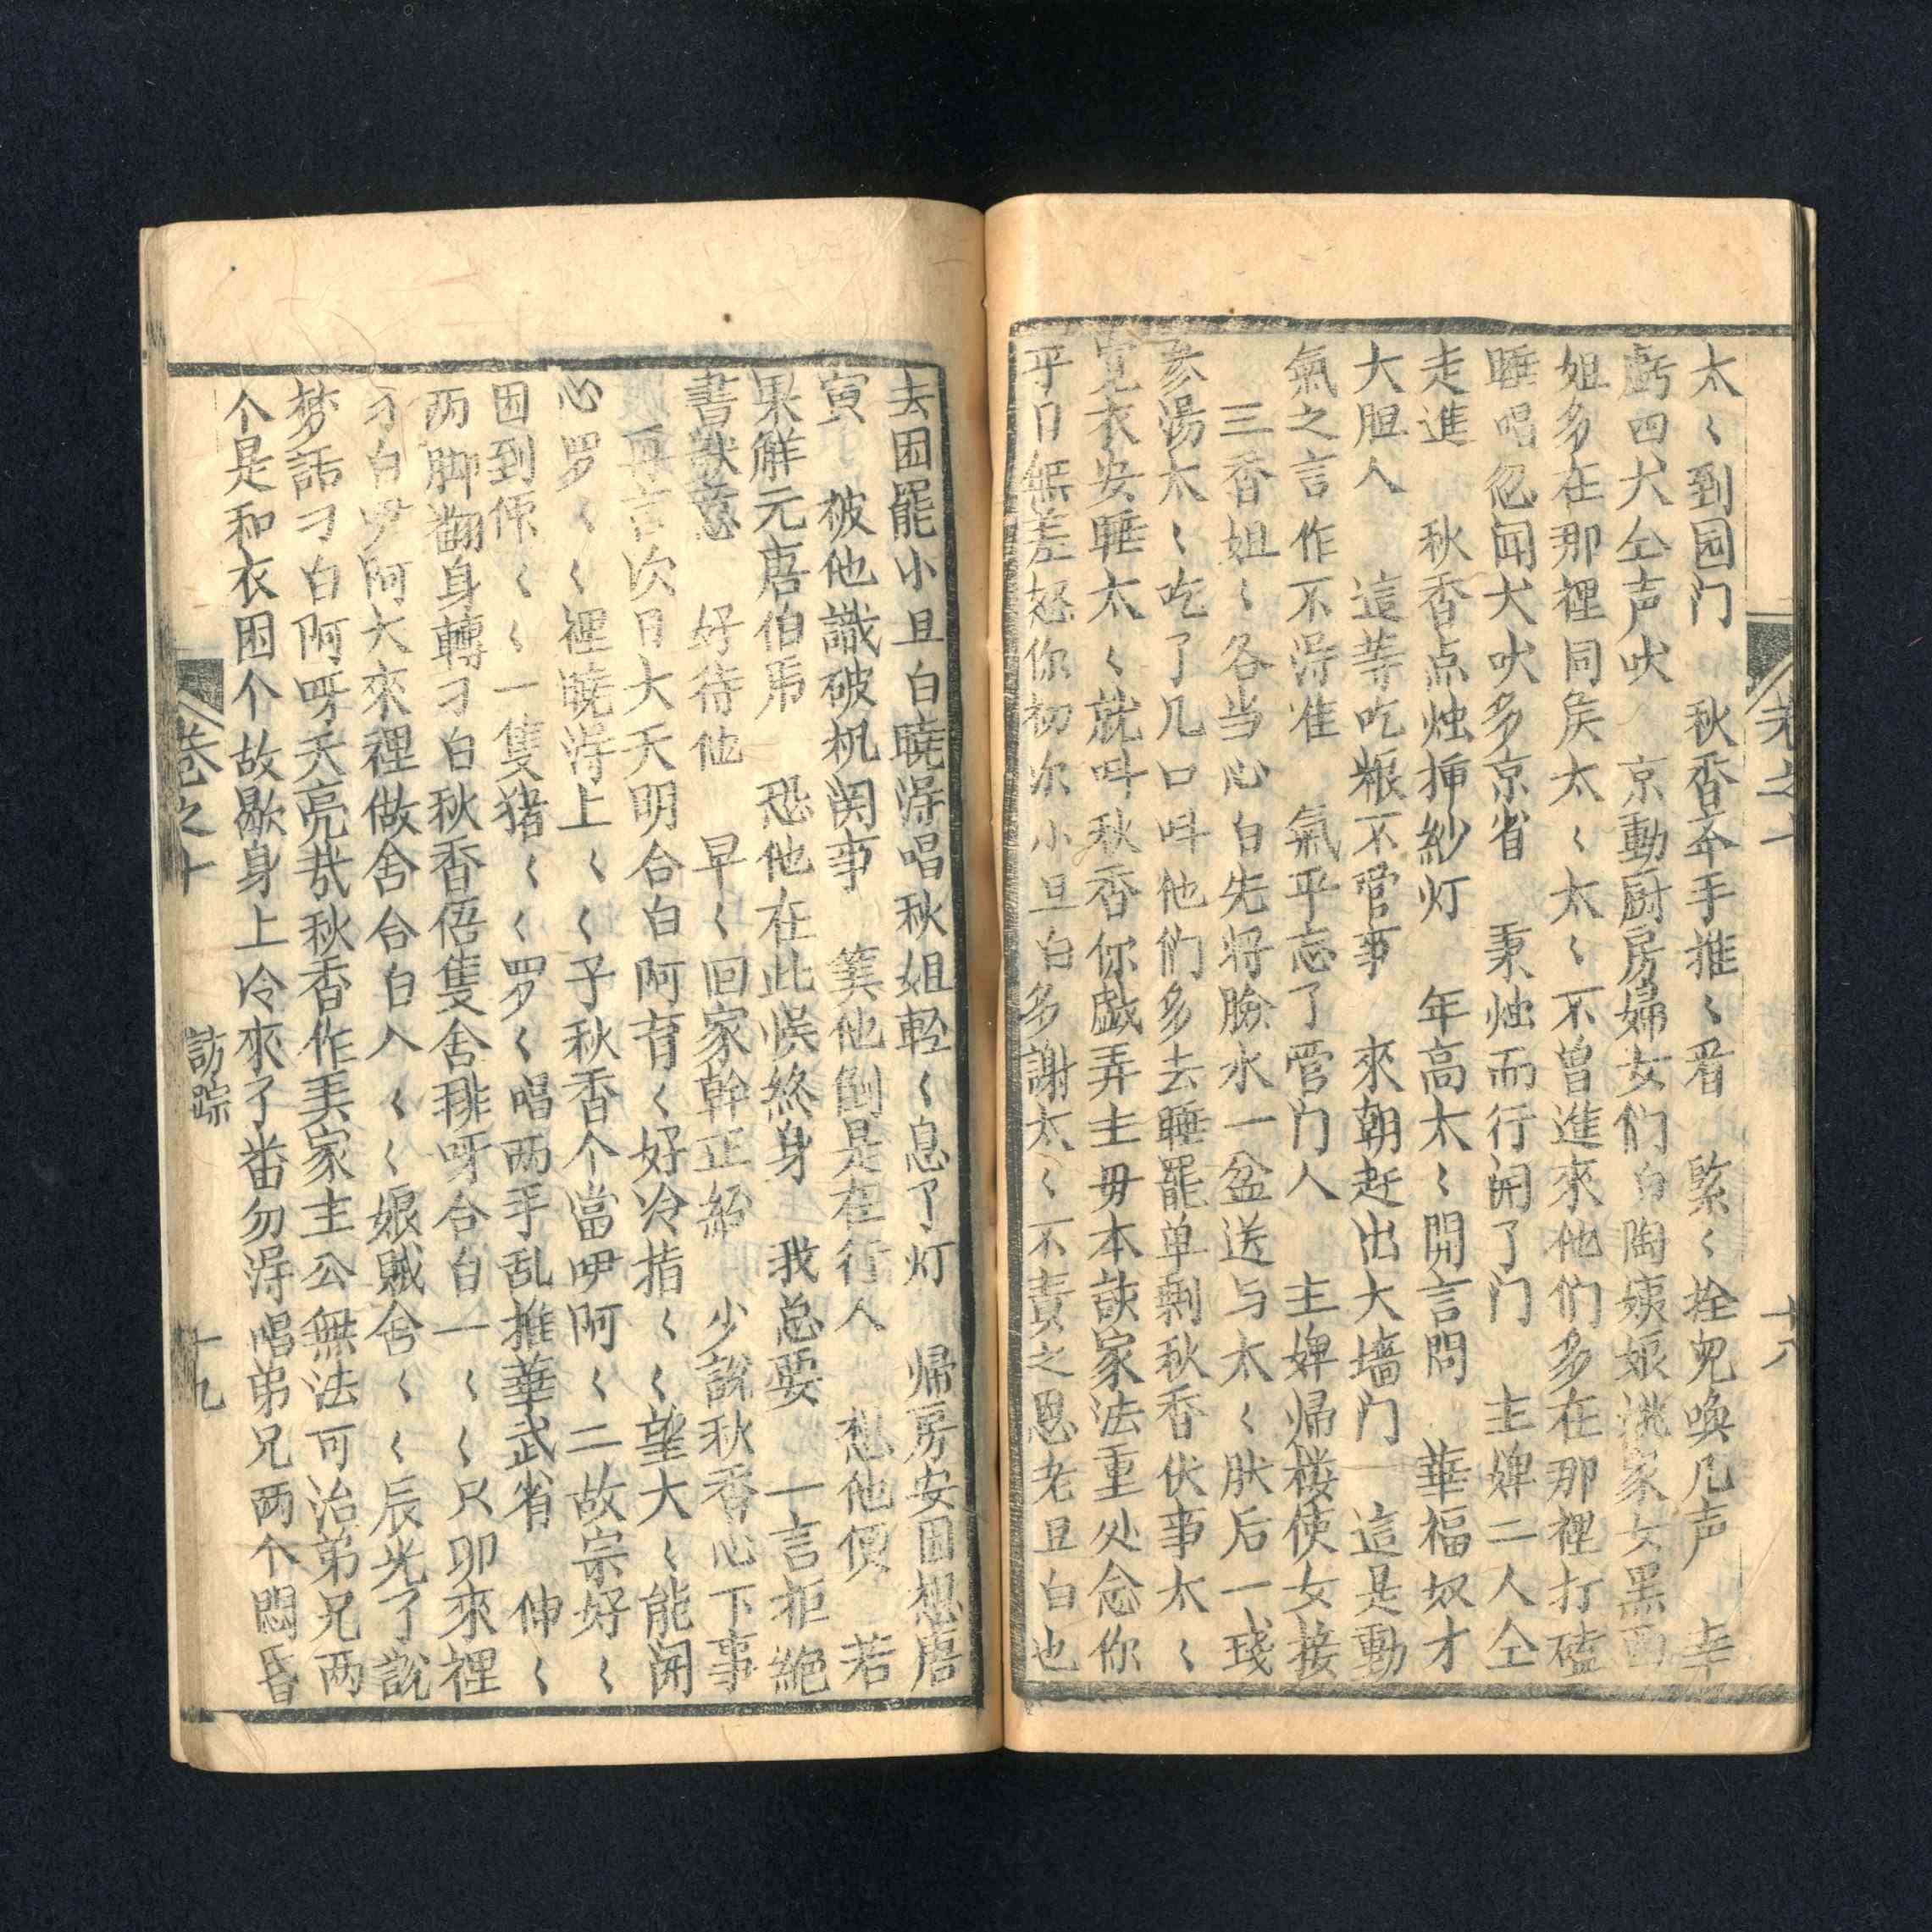 太〻到园门　秋香卒手推〻看　緊〻拴兜唤几声　幸
虧四犬仝声吠　京動厨房婦女们白陶姨娘洮家女黑面
姐多在那裡同矦太〻太〻不曽進來他们多在那裡打磕
睡唱忽闻犬吠多京省　秉烛而行闹了门　主婢二人仝
走進　秋香点烛揷紗灯　年高太〻開言問　華福奴才
大胆人　這等吃粮不管事　來朝赶出大墻门　這是動
氣之言作不淂准　氣平忘了管门人　主婢帰楼使女接
三香姐〻各当心白先将臉水一盆送与太〻肤后一琖
参湯太〻吃了几口呌他們多去睡罷单剩秋香伏事太〻
寛衣安睡太〻就呌秋香你戯弄主毋本該家法重处念你
平日無差恕你初次小旦白多謝太〻不責之恩老旦白也
卷之十
十八
去困罷小旦白曉淂唱秋姐輕〻息了灯　帰房安困想唐
寅　被他識破机関事　筭他倒是在行人　想他便　若
果解元唐伯帍　恐他在此悞終身　我总要　一言拒絶
書獃意　好待他　早〻回家幹正經　少說秋香心下事
再言次日大天明合白阿育〻好冷指〻〻望大〻能闹
心罗〻〻裡曉淂上〻〻子秋香个當吚阿〻二故宗好〻
困到㑚〻〻一隻猪〻〻罗〻唱两手乱推華武省　伸〻
两脚翻身轉刁白秋香俉隻舍琲呀合白一〻〻只卯來裡
刁白罗阿大來裡做舍台白人〻〻娘贼舍〻〻辰光了說
梦話刁白阿呀天亮哉秋香作美家主公無法可治弟兄两
个是和衣困个故歇身上冷來了畨勿淂唱弟兄两个悶昏
卷之十
訪踪
十九